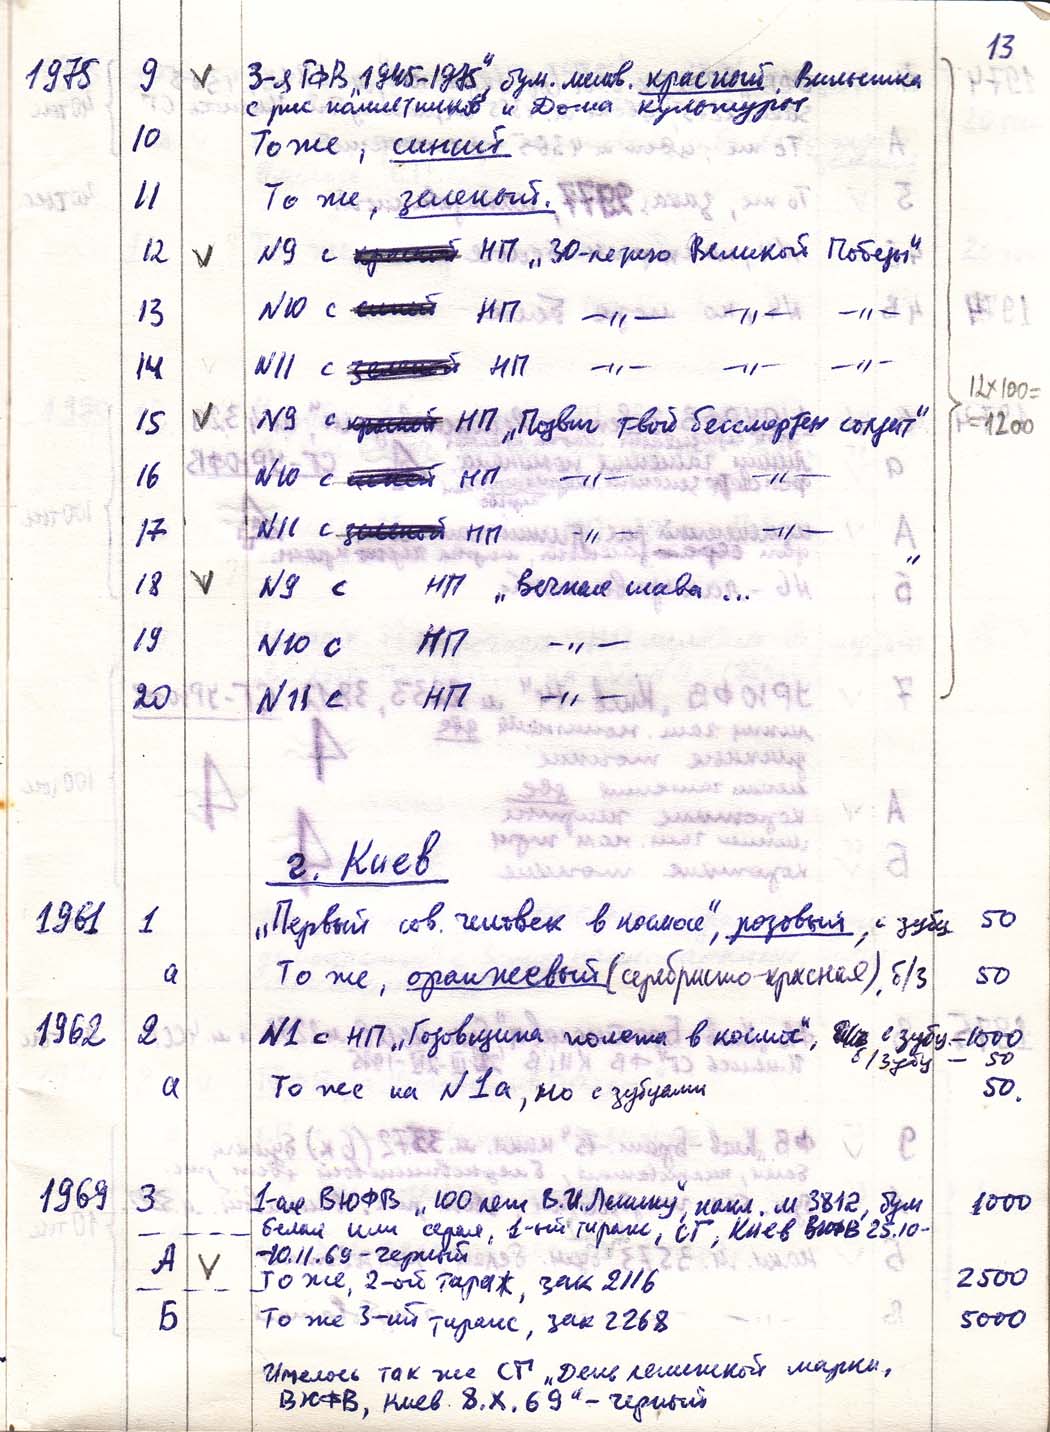 13
1975 9 V 3-я ГФВ „1945-1975", бум. мелов. красный, Вильнюса
с рис памятников и Дома культуры
10 То же, синий
11 То же, зеленый.
12 V N9 с красной НП „30-летию Великой Победы"
13 N10 с синей НП —„— —„— —„—
14 N11 с зеленой НП —„— —„— —„—
12×100=
=1200
15 V N9 с красной НП „Подвиг твой бессмертен солдат"
16 N10 с синей НП —„— —„—
17 N11 с зеленой НП —„— —„—
18 V N9 с НП „Вечная слава ..."
19 N10 с НП —„—
20 N11 с НП —„—
г. Киев
1961 1 „Первый сов. человек в космосе", розовый, с зубц 50
а То же, оранжевый (серебристо-красная), б/з 50
1962 2 N1 с НП „Годовщина полета в космос", с зубц —1000
б/зубц — 50
а То же на N1а, но с зубцами 50.
1969 3 1-ая ВЮФВ „100 лет В.И.Ленину", накл. м 3812, бум 1000
белая или серая, 1-ый тираж, СГ, Киев ВЮФВ 25.10-
-10.11.69 - черный
А V То же, 2-ой тираж, зак 2116 2500
Б То же 3-ий тираж, зак 2268 5000
Имелось так же СГ „День ленинской марки,
ВЮФВ, Киев 8.X.69" - черный